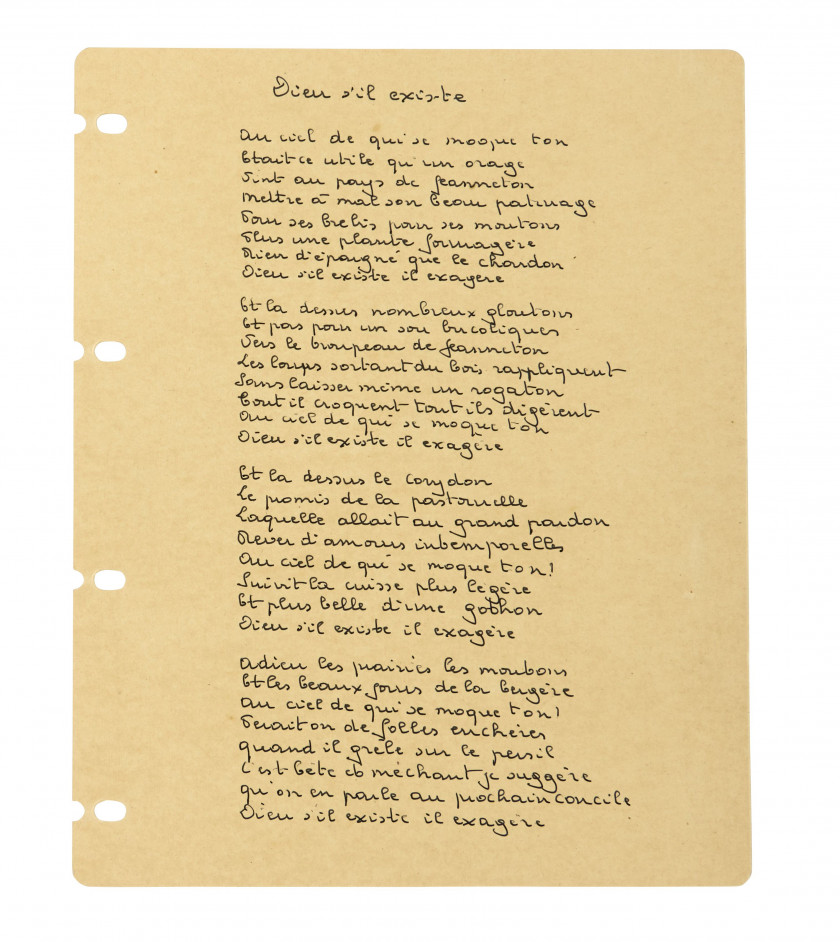 Dieu s'il existe
Au ciel de qui se moque ton
Etait ce utile qu'un orage
Vint au pays de Jeanneton
Mettre à mal son beau paturage
Pour ses brebis pour ses moutons
Plus une plante fourragère
Rien d'épargné que le chardon
Dieu s'il existe il exagère
Et la dessus nombreux gloutons
Et pas pour un sou bucoliques
Vers le troupeau de Jeanneton
Les loups sortant du bois rappliquent
Sans laisser meme un rogaton
Tout il croquent tout ils digèrent
Au ciel de qui se moque ton
Dieu s'il existe il exagère
Et la dessus le corydon
Le promis de la pastourelle
Laquelle allait au grand pardon
Rever d'amours intemporelles
Au ciel de qui se moque ton!
Suivit la cuisse plus legère
Et plus belle d'une gothon
Dieu s'il existe il exagère
Adieu les prairies les moutons
Et les beaux jours de la bergère
Au ciel de qui se moque ton!
Ferait on de folles enchères
quand il grêle sur le persil
c'est bête et méchant je suggère
qu'on en parle au prochain concile
Dieu s'il existe il exagère